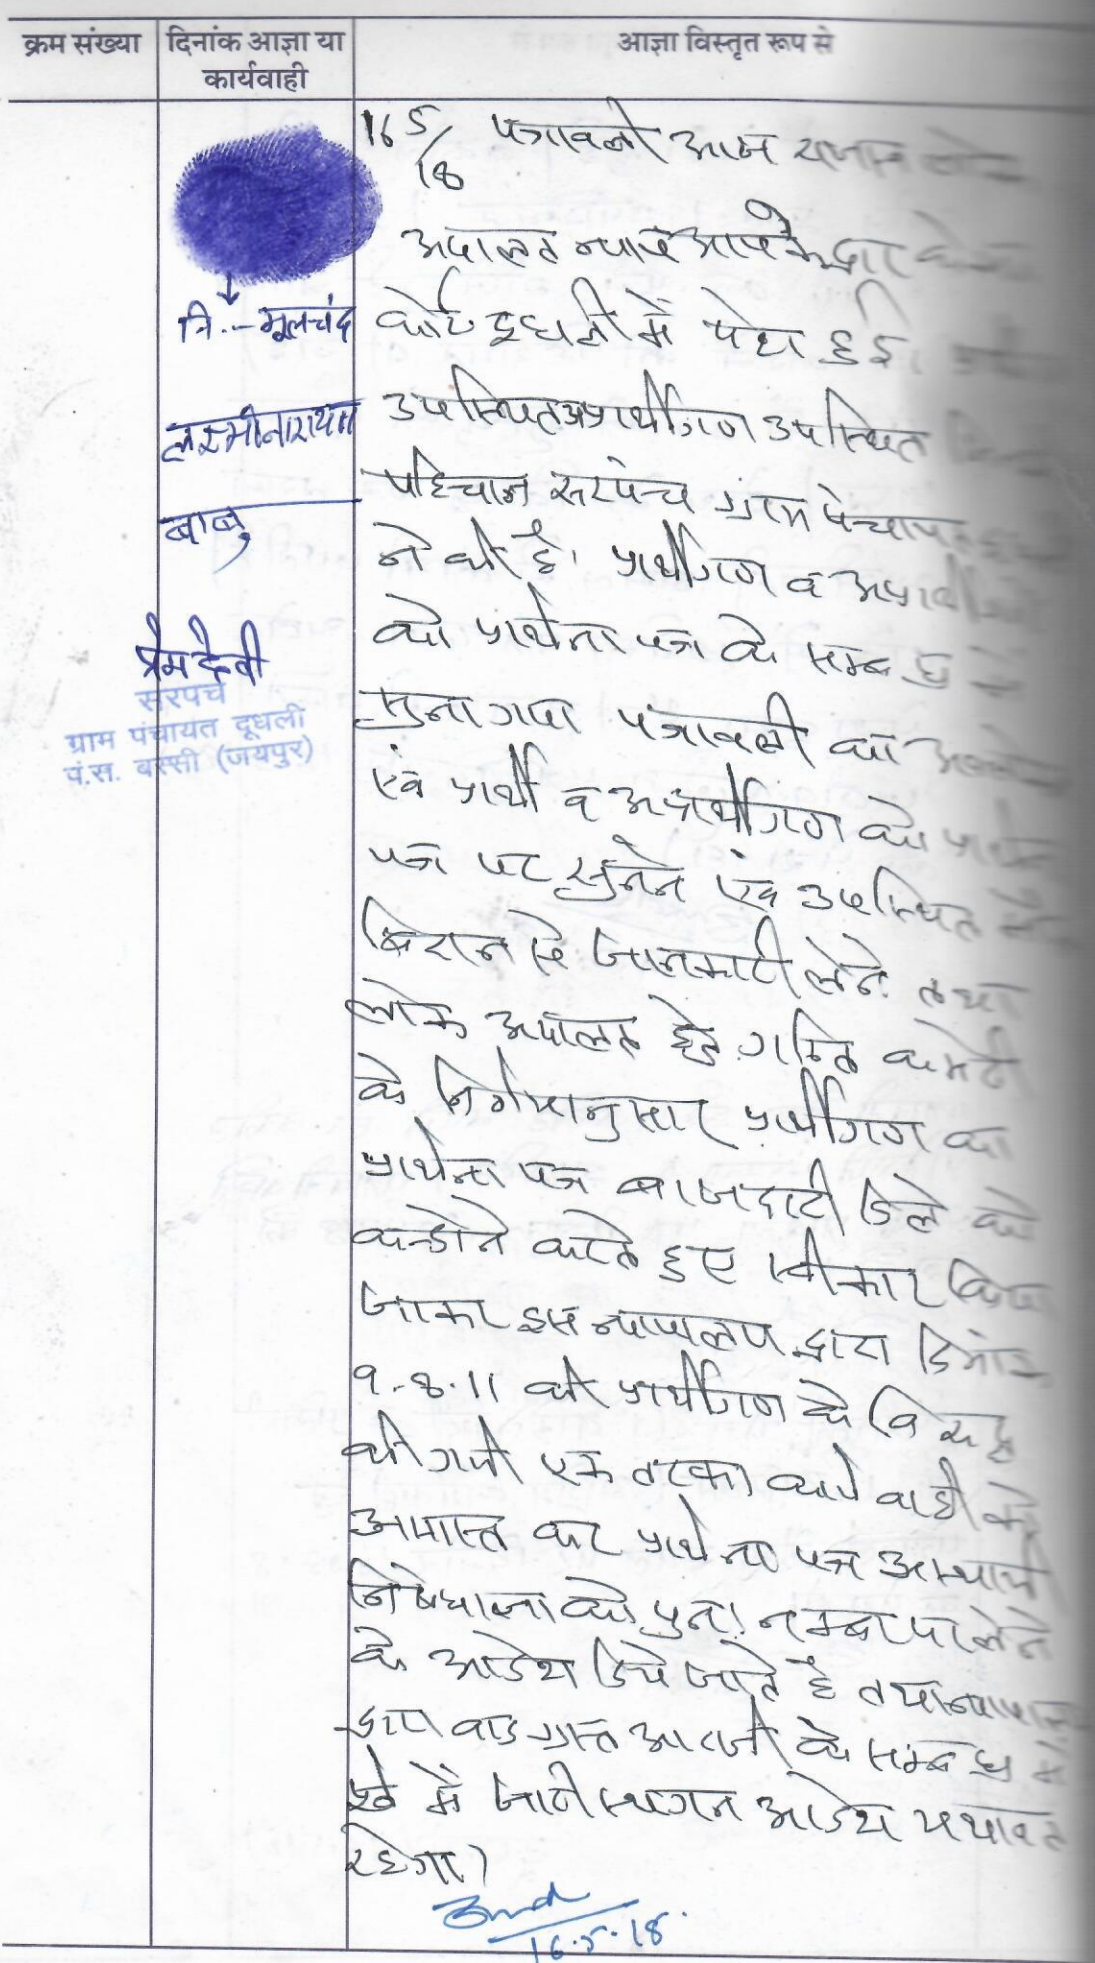 क्रम संख्या
दिनांक आज्ञा या
कार्यवाही
आज्ञा विस्तृत रूप से
नि.-मूलचंद
लक्ष्मीनारायण
बाबु
प्रेम देवी
सरपंच
ग्राम पंचायत दूधली
पं.स. बस्सी (जयपुर)
16 5/18 पत्रावली आज राजस्व लोक
अदालत न्याय आपके द्वार
कोर्ट दुधली में पेश हुई।
उपस्थित अप्रार्थीगण उपस्थित
पहिचान सरपंच ग्राम पंचायत
ने की है। प्रार्थीगण व अप्रार्थी
को प्रार्थना पत्र के सम्बन्ध में
सुना गया पत्रावली का
एवं प्रार्थी व अप्रार्थीगण को प्रार्थना
पत्र पर सुनने एवं उपस्थित
से जानकारी लेने तथा
लोक अदालत हेतु गठित कमेटी
के निर्णयानुसार प्रार्थीगण का
प्रार्थना पत्र बाजदारी डिले को
कन्डोन करते हुए स्वीकार किया
जाकर इस न्यायालय द्वारा दिनांक
9.8.11 को प्रार्थीगण के विरूद्ध
की गयी एक तरफा कार्यवाही को
अपास्त कर प्रार्थना पत्र अस्थायी
निषेधाज्ञा को पुनः नम्बर पर लेने
के आदेश दिये जाते है तथा न्यायालय
द्वारा वादग्रस्त आराजी के सम्बन्ध में
पूर्व में जारी स्थगन आदेश यथावत
रहेगा।
16.5.18